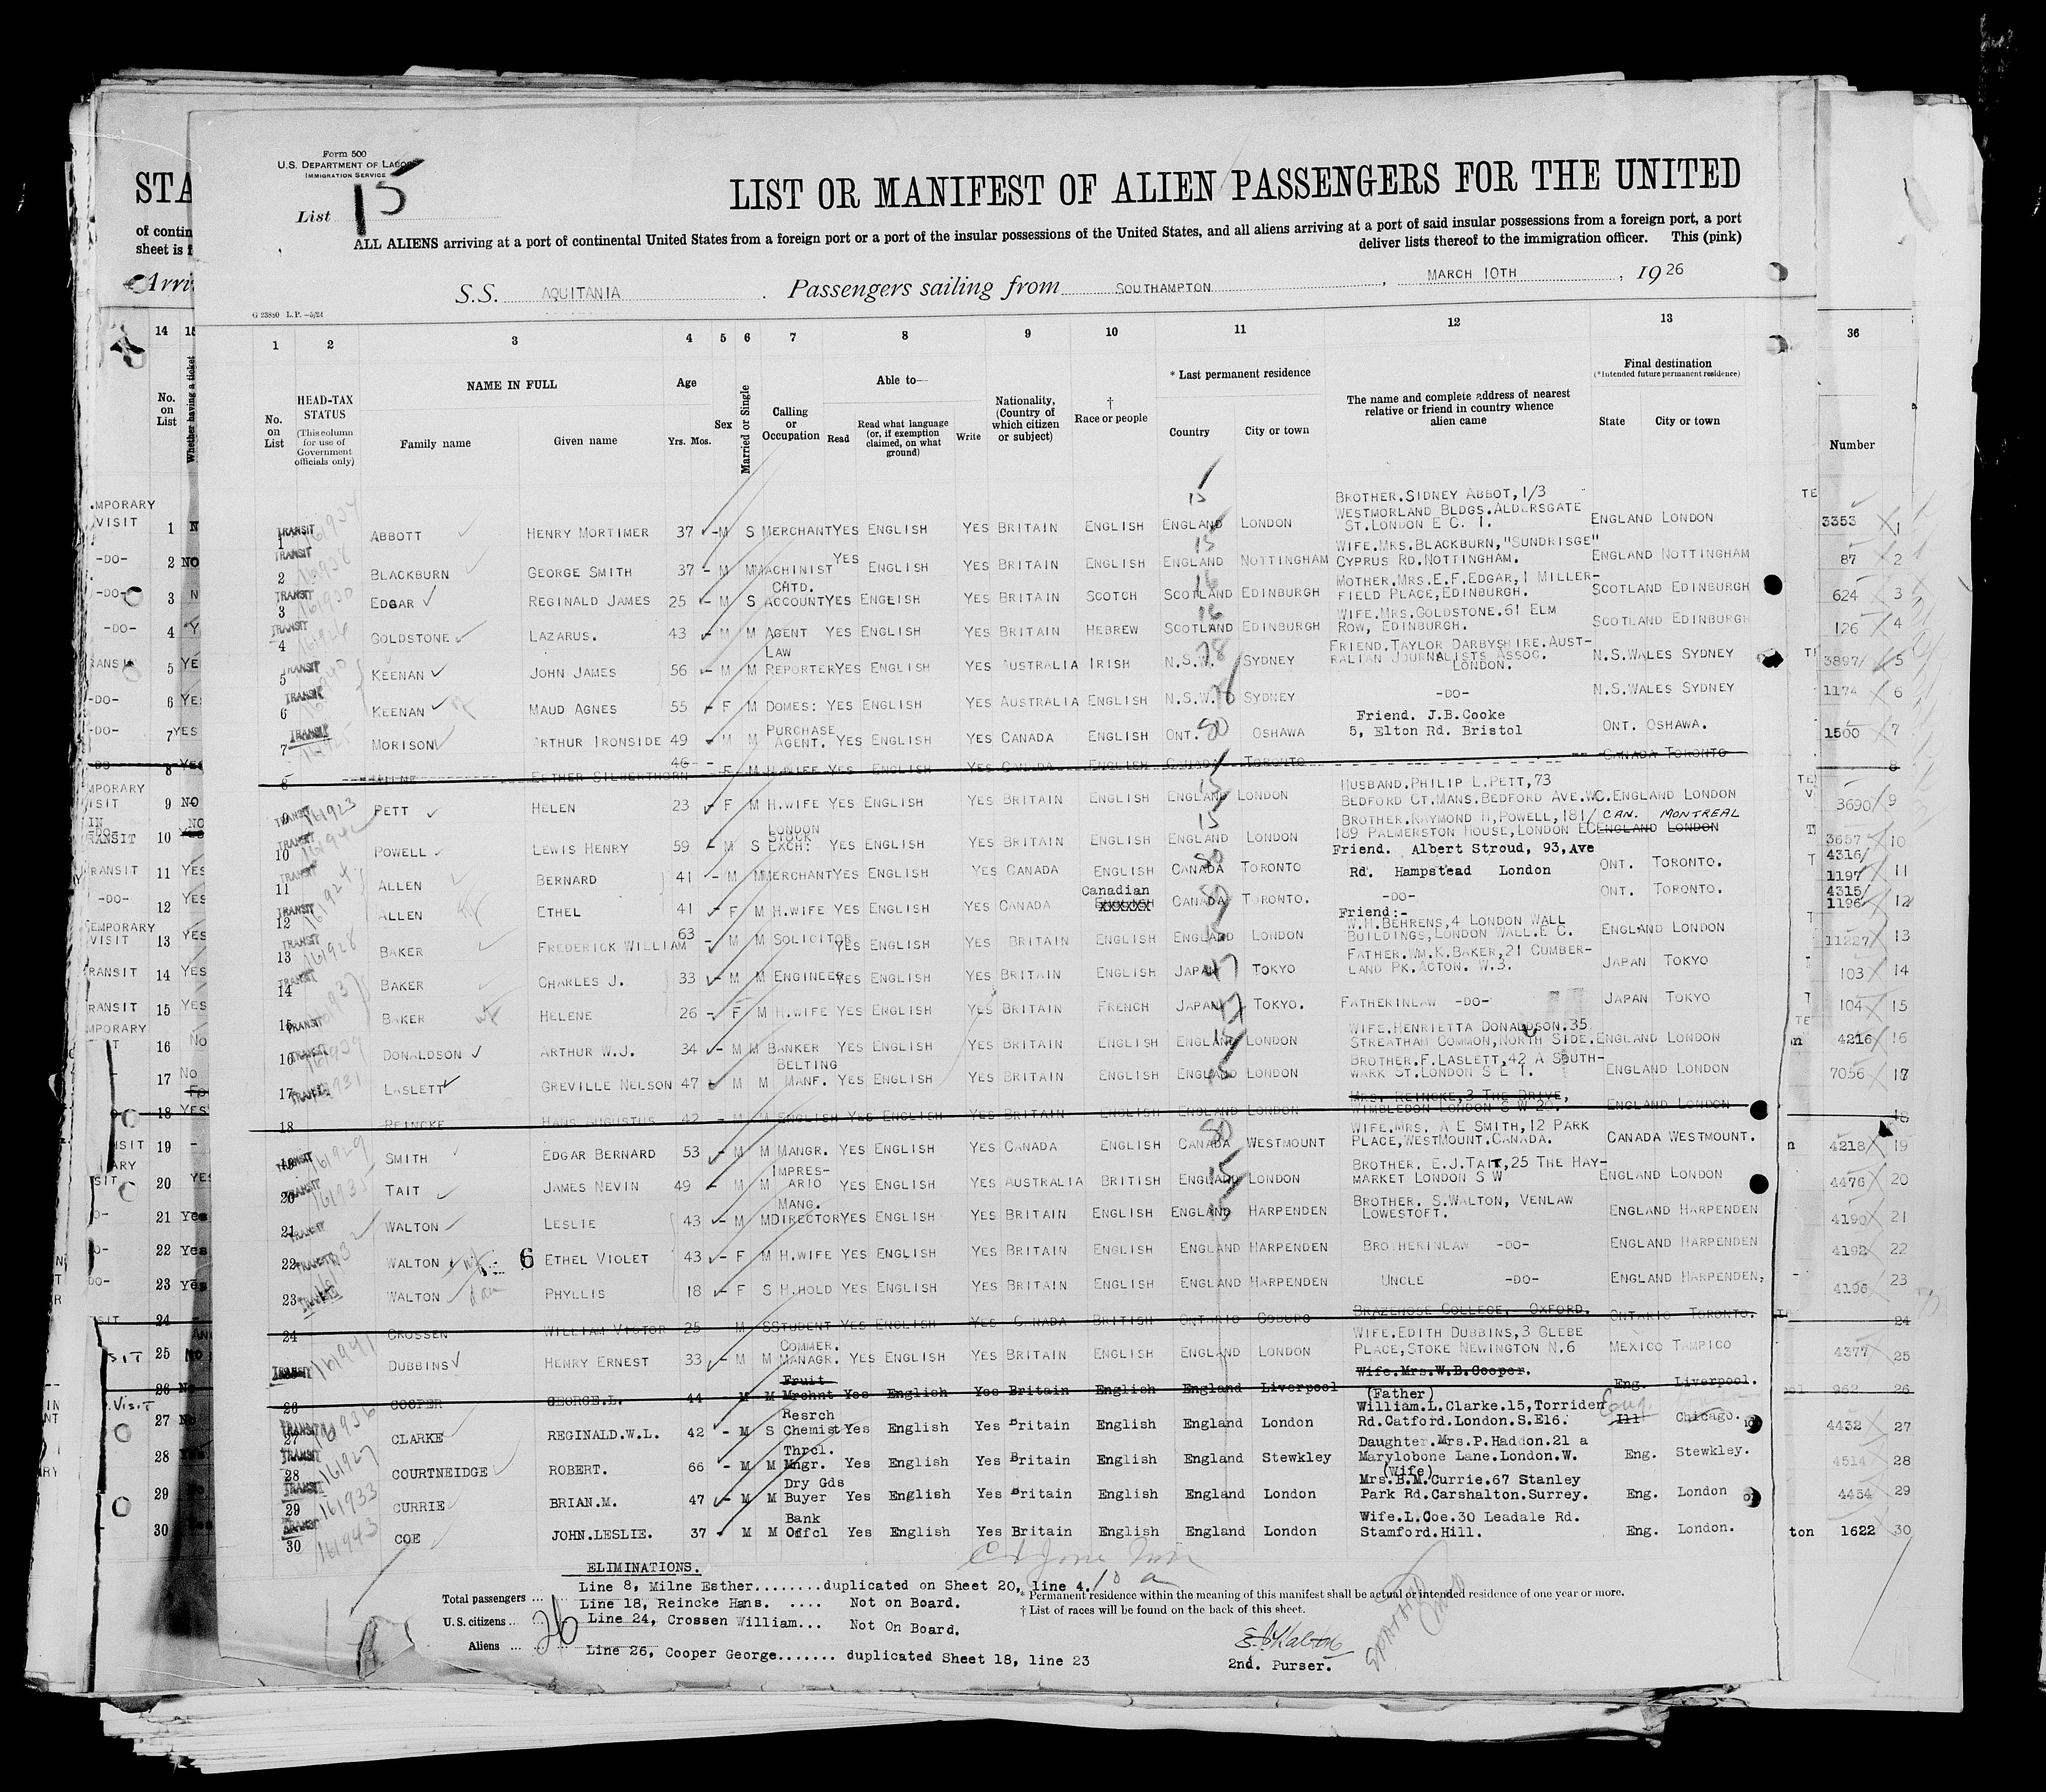 Form 500
U.S. DEPARTMENT OF LABOR
IMMIGRATION SERVICE
List 15
STA
LIST OR MANIFEST OF ALIEN PASSENGERS FOR THE UNITED
of contin
sheet is f
ALL ALIENS arriving at a port of continental United States from a foreign port or a port of the insular possessions of the United States, and all aliens arriving at a port of said insular possessions from a foreign port, a port
deliver lists thereof to the immigration officer. This (pink)
Arri
S.S. AQUITANIA . Passengers sailing from SOUTHAMPTON , MARCH 10TH , 19 26
G 23820 L.P.-5/24
14 1 2 3 4 5 6 7 8 9 10 11 12 13 36
No. on List
Whether having a ticket
No. on List
HEAD-TAX STATUS
(This column for use of Government officials only)
NAME IN FULL
Family name Given name
Age
Yrs. Mos.
Sex
Married or Single
Calling or Occupation
Able to—
Read
Read what language (or, if exemption claimed, on what ground)
Write
Nationality, (Country of which citizen or subject)
†
Race or people
* Last permanent residence
Country City or town
The name and complete address of nearest relative or friend in country whence alien came
Final destination
(*Intended future permanent residence)
State City or town
Number
1 TRANSIT ABBOTT HENRY MORTIMER 37 M S MERCHANT YES ENGLISH YES BRITAIN ENGLISH ENGLAND LONDON BROTHER.SIDNEY ABBOT,1/3 WESTMORLAND BLDGS.ALDERSGATE ST.LONDON E C. 1. ENGLAND LONDON 3353 1
2 TRANSIT BLACKBURN GEORGE SMITH 37 M M MACHINIST YES ENGLISH YES BRITAIN ENGLISH ENGLAND NOTTINGHAM WIFE.MRS.BLACKBURN,"SUNDRISGE" CYPRUS RD.NOTTINGHAM. ENGLAND NOTTINGHAM 87 2
3 TRANSIT EDGAR REGINALD JAMES 25 M S CHTD. ACCOUNT YES ENGLISH YES BRITAIN SCOTCH SCOTLAND EDINBURGH MOTHER.MRS.E.F.EDGAR,1 MILLER- FIELD PLACE,EDINBURGH. SCOTLAND EDINBURGH 624 3
4 TRANSIT GOLDSTONE LAZARUS. 43 M M AGENT YES ENGLISH YES BRITAIN HEBREW SCOTLAND EDINBURGH WIFE.MRS.GOLDSTONE.61 ELM ROW, EDINBURGH. SCOTLAND EDINBURGH 126 4
5 TRANSIT KEENAN JOHN JAMES 56 M M LAW REPORTER YES ENGLISH YES AUSTRALIA IRISH N.S.W. SYDNEY FRIEND.TAYLOR DARBYSHIRE.AUST- RALIAN JOURNALISTS ASSOC. LONDON. N.S.WALES SYDNEY 3897 5
6 TRANSIT KEENAN MAUD AGNES 55 F M DOMES: YES ENGLISH YES AUSTRALIA ENGLISH N.S.W. SYDNEY -DO- N.S.WALES SYDNEY 1174 6
7 TRANSIT MORISON ARTHUR IRONSIDE 49 M M PURCHASE AGENT. YES ENGLISH YES CANADA ENGLISH ONT. OSHAWA Friend. J.B.Cooke 5, Elton Rd. Bristol ONT. OSHAWA. 1500 7
8 MILNE ESTHER SILBERTHORN 46 F M H.WIFE YES ENGLISH YES CANADA ENGLISH CANADA TORONTO CANADA TORONTO 8
9 TRANSIT 161923 PETT HELEN 23 F M H.WIFE YES ENGLISH YES BRITAIN ENGLISH ENGLAND LONDON HUSBAND.PHILIP L.PETT,73 BEDFORD CT.MANS.BEDFORD AVE.WC. ENGLAND LONDON 3690 9
10 TRANSIT POWELL LEWIS HENRY 59 M S LONDON STOCK EXCH: YES ENGLISH YES BRITAIN ENGLISH ENGLAND LONDON BROTHER.RAYMOND H,POWELL,181/ 189 PALMERSTON HOUSE,LONDON EC CAN. MONTREAL ENGLAND LONDON 3657 10
11 TRANSIT ALLEN BERNARD 41 M M MERCHANT YES ENGLISH YES CANADA ENGLISH CANADA TORONTO Friend. Albert Stroud, 93,Ave Rd. Hampstead London ONT. TORONTO. 4316/ 1197 11
12 TRANSIT ALLEN ETHEL 41 F M H.WIFE YES ENGLISH YES CANADA Canadian CANADA TORONTO. -DO- ONT. TORONTO. 4315/ 1196 12
13 TRANSIT 161928 BAKER FREDERICK WILLIAM 63 M M SOLICITOR YES ENGLISH YES BRITAIN ENGLISH ENGLAND LONDON Friend:- W.H.BEHRENS,4 LONDON WALL BUILDINGS,LONDON WALL.E C. ENGLAND LONDON 11227 13
14 TRANSIT BAKER CHARLES J. 33 M M ENGINEER YES ENGLISH YES BRITAIN ENGLISH JAPAN TOKYO FATHER.WM.K.BAKER,21 CUMBER- LAND PK.ACTON. W.3. JAPAN TOKYO 103 14
15 TRANSIT BAKER HELENE 26 F M H.WIFE YES ENGLISH YES BRITAIN FRENCH JAPAN TOKYO. FATHERINLAW -DO- JAPAN TOKYO 104 15
16 TRANSIT DONALDSON ARTHUR W.J. 34 M M BANKER YES ENGLISH YES BRITAIN ENGLISH ENGLAND LONDON WIFE.HENRIETTA DONALDSON.35 STREATHAM COMMON,NORTH SIDE. ENGLAND LONDON 4216 16
17 TRANSIT 161931 LASLETT GREVILLE NELSON 47 M M BELTING MANF. YES ENGLISH YES BRITAIN ENGLISH ENGLAND LONDON BROTHER.F.LASLETT,42 A SOUTH- WARK ST.LONDON S E 1. ENGLAND LONDON 7056 17
18 REINCKE HANS AUGUSTUS 42 M M ENGLISH YES ENGLISH YES BRITAIN ENGLISH ENGLAND LONDON MRS. REINCKE,3 THE DRIVE, WIMBLEDON LONDON S W 20. ENGLAND LONDON 18
19 TRANSIT 161929 SMITH EDGAR BERNARD 53 M M MANGR. YES ENGLISH YES CANADA ENGLISH CANADA WESTMOUNT WIFE.MRS. A E SMITH,12 PARK PLACE,WESTMOUNT.CANADA. CANADA WESTMOUNT. 4218 19
20 TRANSIT 161935 TAIT JAMES NEVIN 49 M M IMPRES- ARIO YES ENGLISH YES AUSTRALIA BRITISH ENGLAND LONDON BROTHER. E.J.TAIT,25 THE HAY- MARKET LONDON S W ENGLAND LONDON 4476 20
21 TRANSIT WALTON LESLIE 43 M M MANG. DIRECTOR YES ENGLISH YES BRITAIN ENGLISH ENGLAND HARPENDEN BROTHER. S.WALTON, VENLAW LOWESTOFT. ENGLAND HARPENDEN 4190 21
22 TRANSIT WALTON wf 6 ETHEL VIOLET 43 F M H.WIFE YES ENGLISH YES BRITAIN ENGLISH ENGLAND HARPENDEN BROTHERINLAW -DO- ENGLAND HARPENDEN 4192 22
23 TRANSIT WALTON dau PHYLLIS 18 F S H.HOLD YES ENGLISH YES BRITAIN ENGLISH ENGLAND HARPENDEN UNCLE -DO- ENGLAND HARPENDEN, 4196 23
24 CROSSEN WILLIAM VICTOR 25 M S STUDENT YES ENGLISH YES CANADA BRITISH ONTARIO COBURG BRAZENOSE COLLEGE, OXFORD. ONTARIO TORONTO. 24
TRANSIT 161941 DUBBINS HENRY ERNEST 33 M M COMMER. MANAGR. YES ENGLISH YES BRITAIN ENGLISH ENGLAND LONDON WIFE.EDITH DUBBINS,3 GLEBE PLACE,STOKE NEWINGTON N.6 MEXICO TAMPICO 4377 25
26 COOPER GEORGE.L. 44 M M Fruit Mrchnt Yes English Yes Britain English England Liverpool Wife.Mrs.W.B.Cooper. Eng. Liverpool. 962 26
27 TRANSIT 161936 CLARKE REGINALD.W.L. 42 M S Resrch Chemist Yes English Yes Britain English England London (Father) William.L.Clarke.15,Torriden Rd.Catford.London.S.E16. Ill Chicago. 4432 27
28 TRANSIT 161927 COURTNEIDGE ROBERT. 66 M M Thrcl. Mngr. Yes English Yes Britain English England Stewkley Daughter.Mrs.P.Haddon.21 a Marylobone Lane.London.W. Eng. Stewkley. 4514 28
29 TRANSIT 161933 CURRIE BRIAN.M. 47 M M Dry Gds Buyer Yes English Yes Britain English England London (Wife) Mrs.B.M.Currie.67 Stanley Park Rd.Carshalton.Surrey. Eng. London 4454 29
30 TRANSIT 161943 COE JOHN.LESLIE. 37 M M Bank Offcl Yes English Yes Britain English England London Wife.L.Coe.30 Leadale Rd. Stamford.Hill. Eng. London. 1622 30
ELIMINATIONS.
Line 8, Milne Esther........duplicated on Sheet 20, line 4.
Total passengers ... ...
Line 18, Reincke Hans. .... Not on Board.
U.S. citizens ...
Line 24, Crossen William... Not On Board.
Aliens ... ... 26
Line 26, Cooper George....... duplicated Sheet 18, line 23
* Permanent residence within the meaning of this manifest shall be actual or intended residence of one year or more.
† List of races will be found on the back of this sheet.
2nd. Purser.